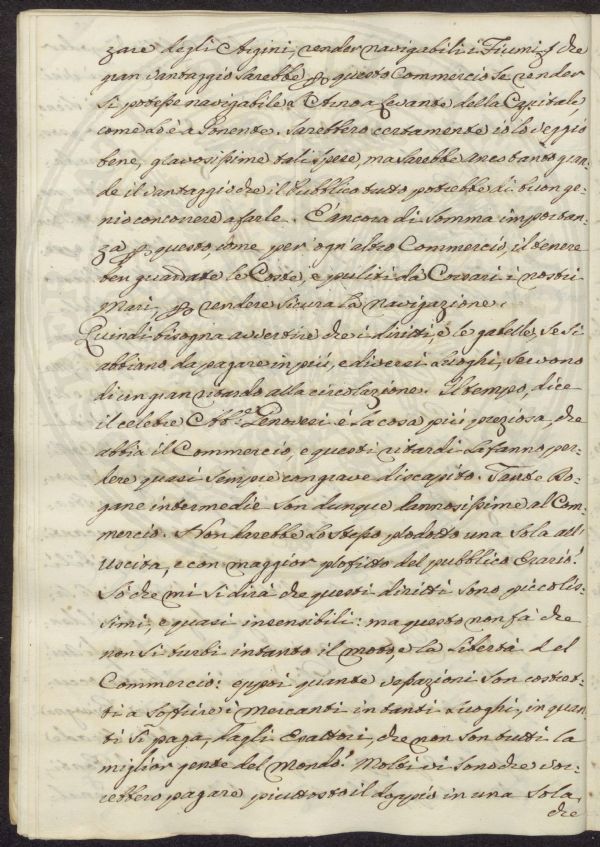 zare degli Argini, render navigabili i Fiumi; che
gran vantaggio sarebbe p questo Commercio se render
si potesse navigabile a Levante della Capitale,
come lo è a Ponente. Sarebbero certamente io lo veggio
bene, gravosissime tali spese, ma sarebbe anco tanto gran-
de il vantaggio che il Pubblico tutto potrebbe di buon ge-
nio concorrere a farle. È ancora di somma importan-
za p questo, come per ogn'altro Commercio, il tenere
ben guardate le Coste, e puliti dà Corsari i nostri
Mari, p rendere sicura la navigazione.
Quindi bisogna avvertire che i diritti, e le gabelle, se si
abbiano da pagare in più, e diversi Luoghi, servono
di un gran ritardo alla circolazione. Il tempo, dice
il celebre Ab.e Genovesi è la cosa più preziosa, che
abbia il Commercio, e questi ritardi la fanno per-
dere quasi sempre con grave discapito. Tante Do-
gane intermedie son dunque dannosissime al Com-
mercio. Non darebbe lo stesso prodotto una sola all'
uscita, e con maggior profitto del pubblico Erario?
Sò che mi si dirà che questi diritti sono piccolis-
simi, e quasi insensibili: ma questo non fà che
non si turbi intanto il moto, e la libertà del
Commercio: eppoi quante vessazioni son costret-
ti a soffrire i Mercanti in tanti Luoghi, in quan-
ti si paga, dagli Esattori, che non son tutti la
miglior gente del Mondo! Molti vi sono che vor-
rebbero pagare piuttosto il doppio in una sola,
che